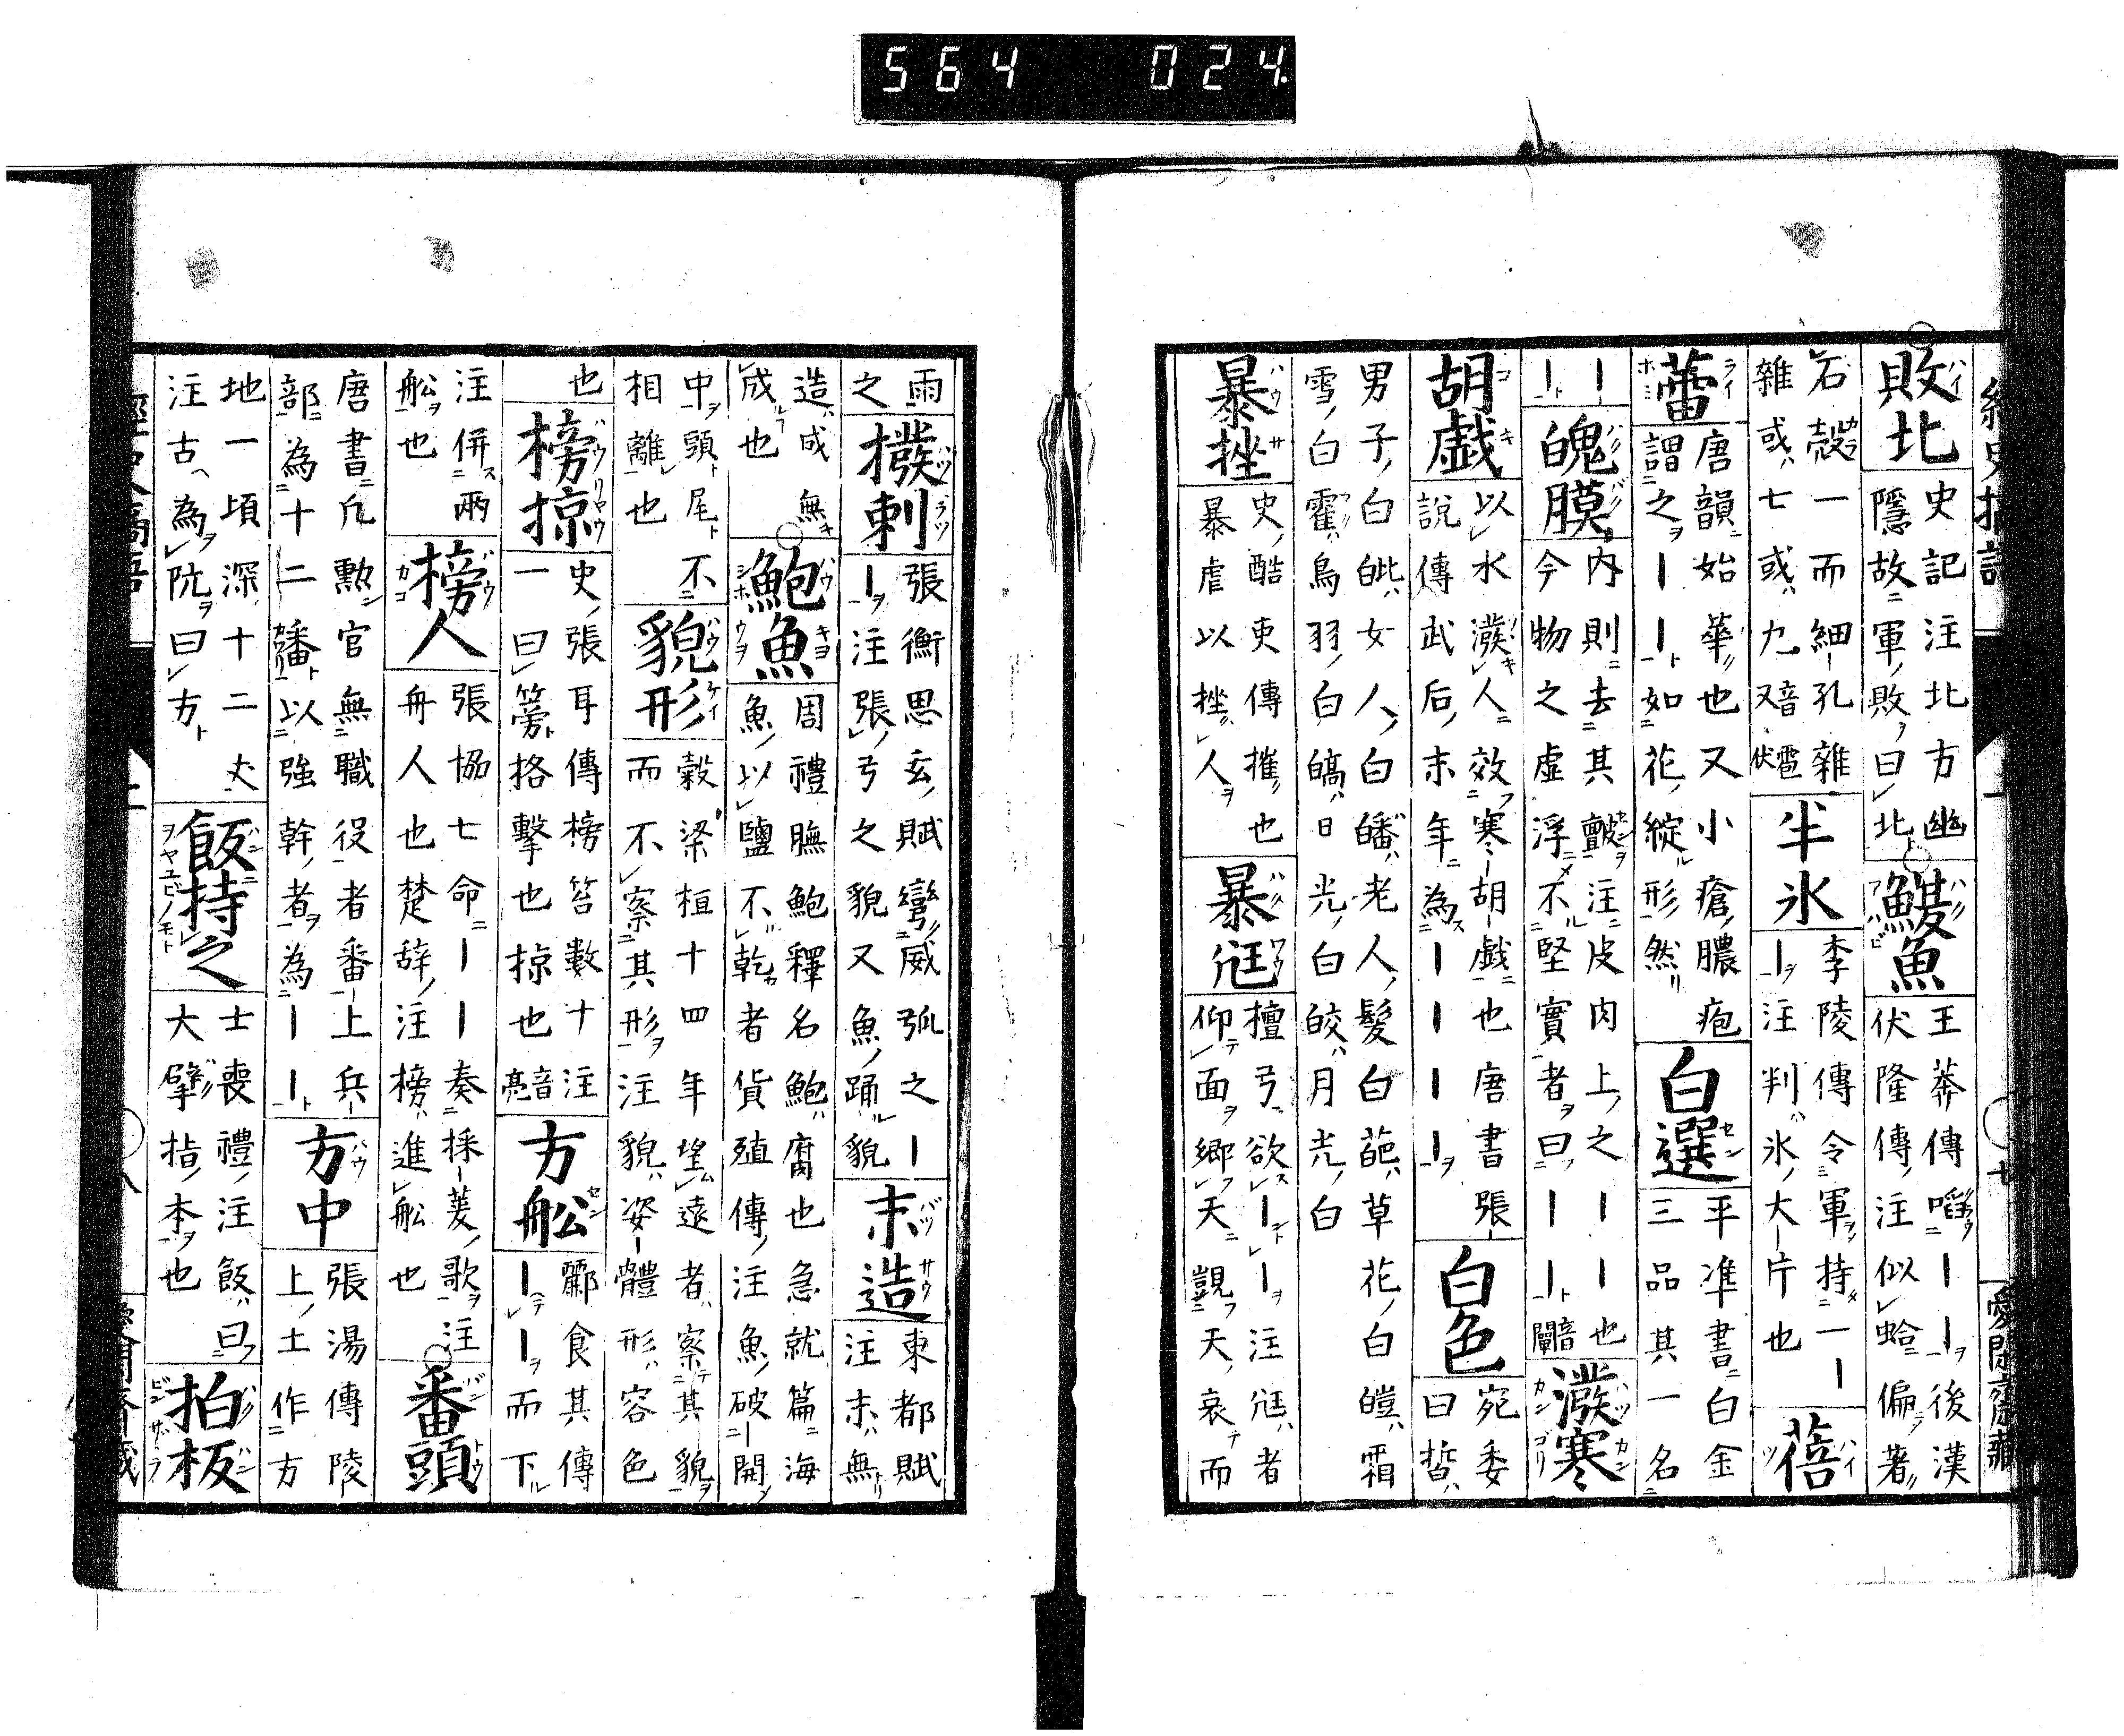 564 024
敗北
史記注北方幽
隱故軍敗曰北
鰒魚
王莽傳啗ーー後漢
伏隆傳注似蛤偏著
石殼一而細孔雜
雜或七或九
音雹又伏
半氷
李陵傳令軍持一ー
ー注判氷大片也
蓓蕾
唐韻始華也又小瘡膿疱
謂之ーー如花綻形然
白選
平準書白金
三品其一名
ーー
魄膜
内則去其皽注皮肉上之ーー也
今物之虛浮不堅實者曰ーー
音闡
潑寒胡戯
以水潑人效寒胡戯也唐書張
說傳武后末年為ーーーー
白色
宛委
曰皙
男子白皉女人白皤老人髮白葩草花白皚霜
雪白霍鳥羽白皜日光白皎月光白
暴挫
史酷吏傳摧也
暴虐以挫人
暴尫
檀弓欲ーー注尫者
仰面鄉天覬天哀而
雨之
撥剌
張衡思玄賦彎威弧之ー
ー注張弓之貌又魚踊貌
末造
東都賦
注末無
造成無
成也
鮑魚
周禮膴鮑釋名鮑腐也急就篇海
魚以鹽不乾者貨殖傳注魚破開
中頭尾不
相離也
貌形
穀梁桓十四年望遠者察其貌
而不察其形注貌姿體形容色
也
榜掠
史張耳傳榜笞數十注
一曰篣挌擊也掠也
音亮
方舩
酈食其傳
ーーー而下
注併兩
舩也
榜人
張協七命ーー奏採菱歌注
舟人也楚辞注榜進舩也
番頭
唐書凡勲官無職役者番上兵
部為十二番以強幹者為ーー
方中
張湯傳陵
上土作方
地一頃深十二丈
注古為阬曰方
飯持之
士喪禮注飯曰
大擘指本也
拍板